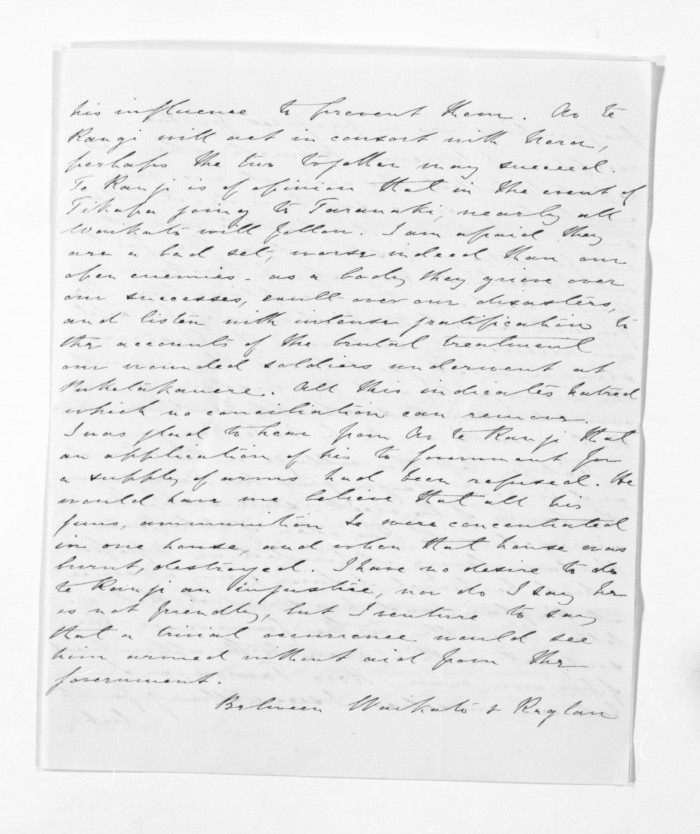 his influence to prevent them. As te
Rangi will act in consort with Nera,
perhaps the two together may succeed.
Te Rangi is of opinion that in the event of
Tikapa going to Taranaki, nearly all
Waikato will follow. I am afraid they
are a bad set, worse indeed than our
open enemies - as a body they grieve over
our successes, exult over our disasters,
and listen with intense gratification to
the accounts of the brutal treatment
our wounded soldiers underwent at
Puketakauere. All this indicates hatred
which no conciliation can remove.
I was glad to hear from As te Rangi that
an application of his to Government for
a supply of arms had been refused. He
would have me believe that all his
guns, ammunition &c were concentrated
in one house, and when that house was
burnt, destroyed. I have no desire to do
te Rangi an injustice, nor do I say he
is not friendly, but I venture to say
that a trivial occurrence would see
him armed without aid from the
Government.
Between Waikato & Raglan